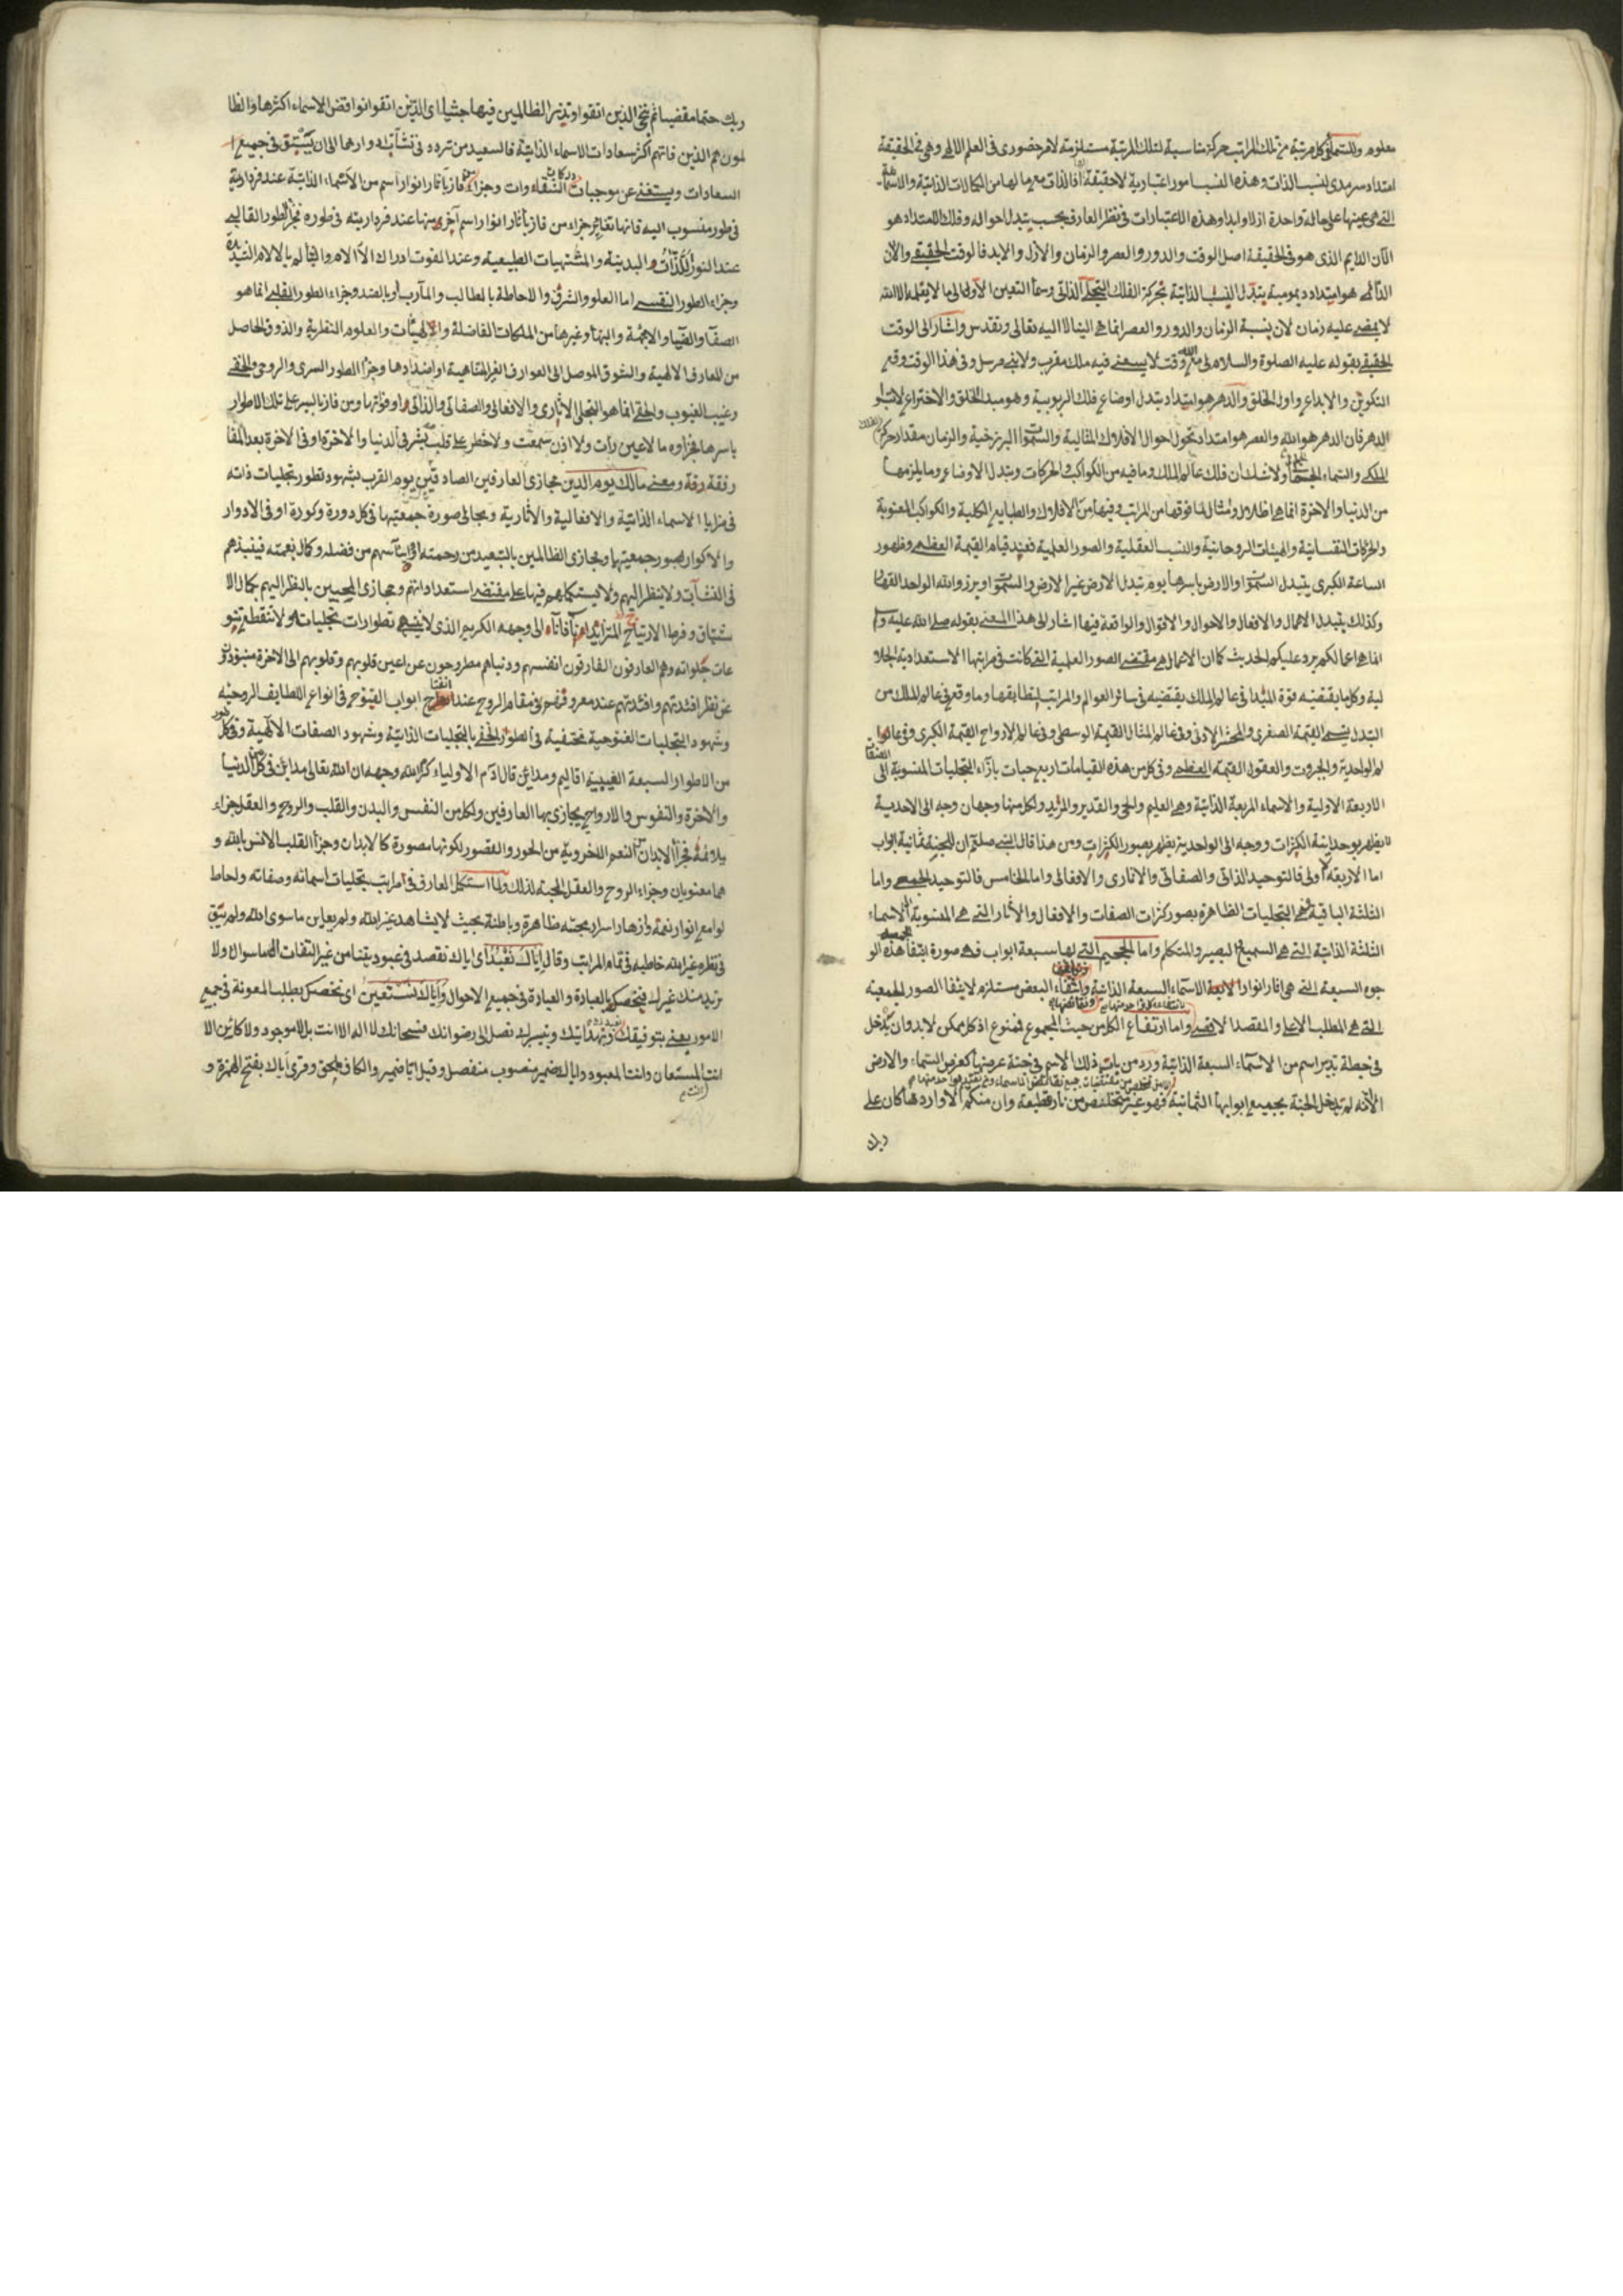 معلوم وللسمآئى كل مرتبة من تلك المراتب حركة مناسبة لتلك المرتبة مستلزمة لامر حضورى فى العلم الالهى وهى فى الحقيقة
امتداد سرمدى لنسب الذات وهذه النسب امور اعتبارية لاحقيقة لها فالذات مع ما لها من الكمالات الذاتية والاسمائية
التى هى عينها على حالة واحدة ازلا وابدا وهذه الاعتبارات فى نظر العارف بحسب يتبدل احواله وذلك الامتداد هو
الآن الدايم الذى هو فى الحقيقة اصل الوقت والدور والعصر والزمان والازل والابد فالوقت الحقيقى والآن
الدائم هو امتداد ديمومية يتبدل النسب الذاتية بحركة الفلك التجلى الذاتى وسمآ التعين الاول الى ما لا يعلمه الا الله
لا يمضى عليه زمان لان نسبة الزمان والدور والعصر انما هى الينا لا اليه تعالى وتقدس واشار الى الوقت
الحقيقى بقوله عليه الصلوة والسلام لى مع الله وقت لا يسعنى فيه ملك مقرب ولا نبى مرسل وفى هذا الوقت وقع
التكوين والابداع واول الخلق والدهر هو امتداد يتبدل اوضاع فلك الربوبية وهو مبدا الخلق والاختراع لا تسبوا
الدهر فان الدهر هو الله والعصر هو امتداد تحول احوال الافلاك المثالية والسموات البرزخية والزمان مقدار حركة الفلك
الملكى والسماء الجسمانى ولا شك ان فلك عالم الملك وما فيه من الكواكب والحركات وتبدل الاوضاع وما يلزمها
من الدنيا والآخرة انما هى اظلال ومثال لما فوقها من المراتب وفيها من الافلاك والطبايع الكلية والكواكب المعنوية
والحركات النفسانية والهيئات الروحانية والنسب العقلية والصور العلمية فعند قيام القيمة العظمى وظهور
الساعة الكبرى يتبدل السموات والارض باسرها يوم تبدل الارض غير الارض والسموات وبرزوا لله الواحد القهار
وكذلك يتبدل الاعمال والافعال والاحوال والاقوال والواقعة فيها اشار الى هذا المعنى بقوله صلى الله عليه وسلم
انما هى اعمالكم يرد عليكم الحديث كما ان الاعمال هى مقتضى الصور العلمية التى كانت فى مراتبها الاستعدادية الجلا
لية وكلما يقتضيه قوة المبدا فى عالم الملك يقتضيه فى سائر العوالم والمراتب بتطابقها وما وقع فى عالم الملك من
التبدل يسمى القيمة الصغرى والمحشر الادنى وفى عالم المثال القيمة الوسطى وفى عالم الارواح القيمة الكبرى وفى عالم
الواحدية والجبروت والعقول القيمة العظمى وفى كل من هذه القيامات اربع جنات بازآء التجليات المنسوبة الى الصفات
الاربعة الاولية والاسماء المربعة الذاتية وهى العليم والحى والقدير والمريد ولكل منها وجهان وجه الى الاحدية
يظهر بوحدانية الكثرات ووجه الى الواحدية يظهر بصور الكثرات ومن هذا قال النبى صلعم ان للجنة ثمانية ابواب
اما الاربعة الاولى فالتوحيد الذاتى والصفاتى والاثارى والافعالى واما الخامس فالتوحيد الجمعى واما
الثلثة الباقية فهى التجليات الظاهرة بصور كثرات الصفات والافعال والآثار التى هى المنسوبة الى الاسماء
الثلثة الذاتية التى هى السميع البصير والمتكلم واما الجحيم التى لها سبعة ابواب فهى صورة انتفاء هذه الو
جوه السبعة التى هى اثار انوار الاسماء السبعة الذاتية وانتفاء البعض مستلزم لانتفا الصور الجمعية
التى هى المطلب الاعلى والمقصد الاقصى واما ارتفاع الكل من حيث المجموع فممنوع اذ كل ممكن لابد وان يدخل
فى حيطة تدبير اسم من الاسمآء السبعة الذاتية ورد من باب ذلك الاسم فى جنة عرضها كعرض السماء والارض
الا انه لم يدخل الجنة بجميع ابوابها الثمانية فهو غير متخلص من نار قطيعة وان منكم الا واردها كان على
ربك
ربك حتما مقضيا ثم ننجى الذين اتقوا ونذر الظالمين فيها جثيا اى الذين اتقوا نواقض الاسماء اكثرها والظا
لمون هم الذين فاتهم اكثر سعادات الاسماء الذاتية فالسعيد من تردد فى نشآت ادوارها الى ان يستبق فى جميع
السعادات ويستغنى عن موجبات الشقاوات وجزاء من فاز بآثار انوار اسم من الاسماء الذاتية عند فردارية
فى طور منسوب اليه فانها تغاير جزاء من فاز بآثار انوار اسم آخر منها عند فرداريته فى طوره فجزاء الطور القالبى
عند الفوز اللذات البدنية والمشتهيات الطبيعية وعند الفوت ادراك الآلام والتالم بالالام الشديدة
وجزاء الطور النفسى اما العلو والشرف والاحاطة بالمطالب والمآرب او بالضد وجزاء الطور القلبى انما هو
الصفآ والضيآ والابهة والبهآ وغيرها من الملكات الفاضلة والهيئات والعلوم النظرية والذوق الحاصل
من المعارف الالهية والشوق الموصل الى العوارف الغير المتناهية او اضدادها وجزآ الطور السرى والروحى والخفى
وغيب الغيوب والخفى انما هو التجلى الآثارى والافعالى والصفاتى والذاتى او فواتها ومن فاز بالسير على تلك الاطوار
باسرها فجزاوه ما لا عين رأت ولا اذن سمعت ولا خطر على قلب بشر فى الدنيا والآخرة او فى الآخرة بعد اللقا
رفقة رفة ومعنى مالك يوم الدين مجازى العارفين الصادقين يوم القرب بشهود تطور تجليات ذاته
فى مزايا الاسماء الذاتية والافعالية والآثارية ومجالى صورة جمعيتها فى كل دورة وكورة او فى الادوار
والاكوار بصور جمعيتها ومجازى الظالمين بالتبعيد من رحمته من فضله وكمال نعمته فينبذهم
فى النشآت ولا ينظر اليهم ولا يستكملهم فيها على مقتضى استعداداتهم ومجازى المحبين بالنظر اليهم بكمال الا
شتياق وفرط الارتياح المتزايد الى وجهه الكريم الذى لا ينتهى تطوارات تجلياته ولا تنقطع تنو
عات جلواته وهم العارفون الفارقون انفسهم ودنياهم مطروحون عن اعين قلوبهم وقلوبهم الى الآخرة منبوذ
عن نظر افئدتهم وافئدتهم عند معروفهم فى مقام الروح عند انفتاح ابواب الفيوح فى انواع اللطايف الروحية
وشهود التجليات الفتوحية مختفية فى اطوار الخفى بالتجليات الذاتية وشهود الصفات الالهية وفى كل طور
من الاطوار السبعة الغيبية اقاليم ومدائن قال آدم الاولياء كرم الله وجهه ان لله تعالى مدائن فى كل من الدنيا
والآخرة والنفوس والارواح يجازى بها العارفين ولكل من النفس والبدن والقلب والروح والعقل جزاء
يلائمه فجزآ الابدان النعم الاخروية من الحور والقصور لكونها مصورة كالابدان وجزآ القلب الانس بالله و
هما معنويان وجزاء الروح والعقل الجنة لذلك ولما استكمل العارف فى مراتب تجليات اسمائه وصفاته ولحاظ
لوامع انوار نعمه وازهار اسرار محبته ظاهرة وباطنة بحيث لا يشاهد غير الله ولم يعاين ما سوى الله ولم يبق
فى نظره غير الله خاطبه فى تمام المراتب وقال اياك نعبد اى اياك نقصد فى عبوديتنا من غير التفات الى ما سواك ولا
نريد منك غيرك فنخصك بالعبادة والعبادة فى جميع الاحوال واياك نستعين اى نخصك بطلب المعونة فى جميع
الامور يعنى بتوفيقك وبهدايتك وتيسيرك نصل الى رضوانك فسبحانك لا اله الا انت بل لا موجود ولا كائن الا
انت المستعان وانت المعبود واياك ضمير منصوب منفصل وقيل ايا ضمير والكاف ملحق وقرى اياك بفتح الهمزة و